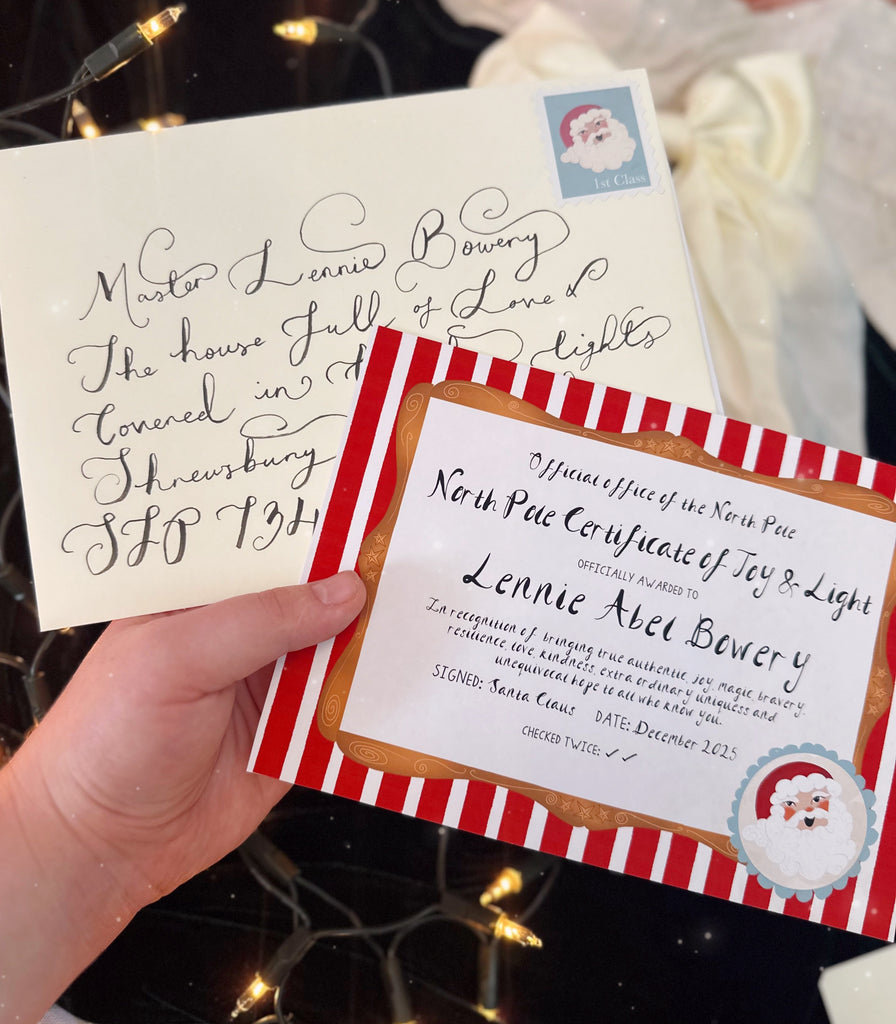 1st Class
Master Lennie Bowery
The house full of Love &
Covered in lights
Shrewsbury
Official office of the North Pole
North Pole Certificate of Joy & Light
OFFICIALLY AWARDED TO
Lennie Abel Bowery
In recognition of bringing true authentic, joy, magic, bravery,
resilience, love, kindness, extra ordinary uniquess and
unequivocal hope to all who know you.
SIGNED: Santa Claus DATE: December 2025
CHECKED TWICE: ✓ ✓